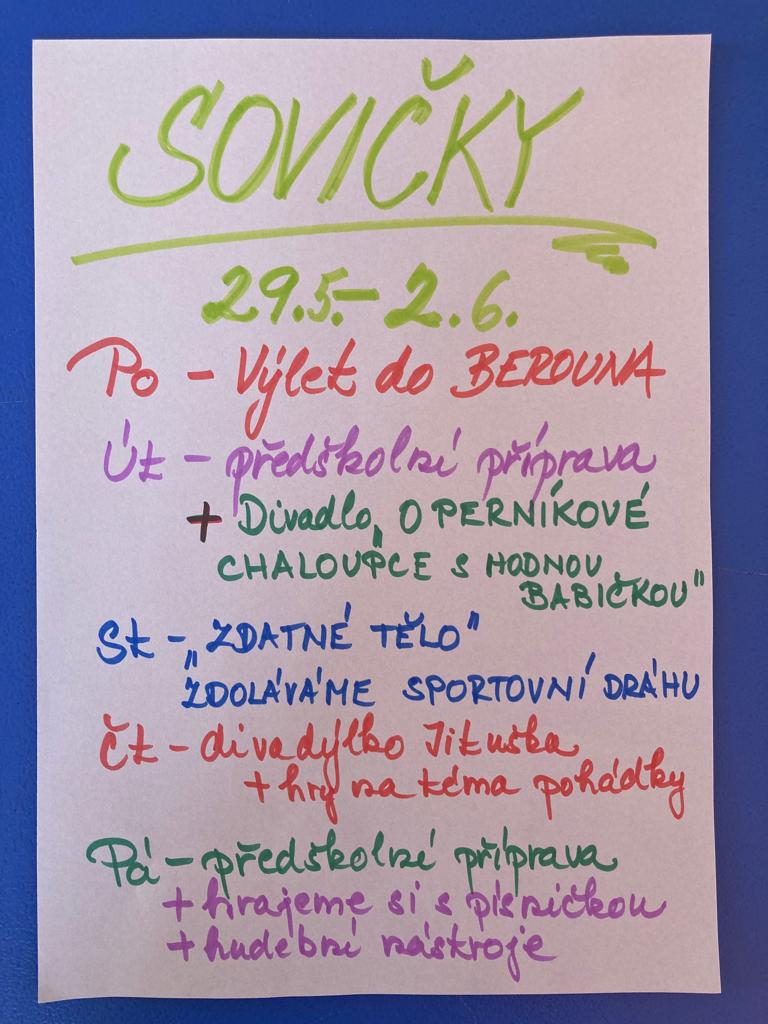 SOVIČKY
29.5.-2.6.
Po - Výlet do BEROUNA
Út - předškolní příprava
+ Divadlo „O PERNÍKOVÉ
CHALOUPCE S HODNOU
BABIČKOU"
St - „ZDATNÉ TĚLO"
ZDOLÁVÁME SPORTOVNÍ DRÁHU
Čt - divadýlko Jituška
+ hry na téma pohádky
Pá - předškolní příprava
+ hrajeme si s písničkou
+ hudební nástroje